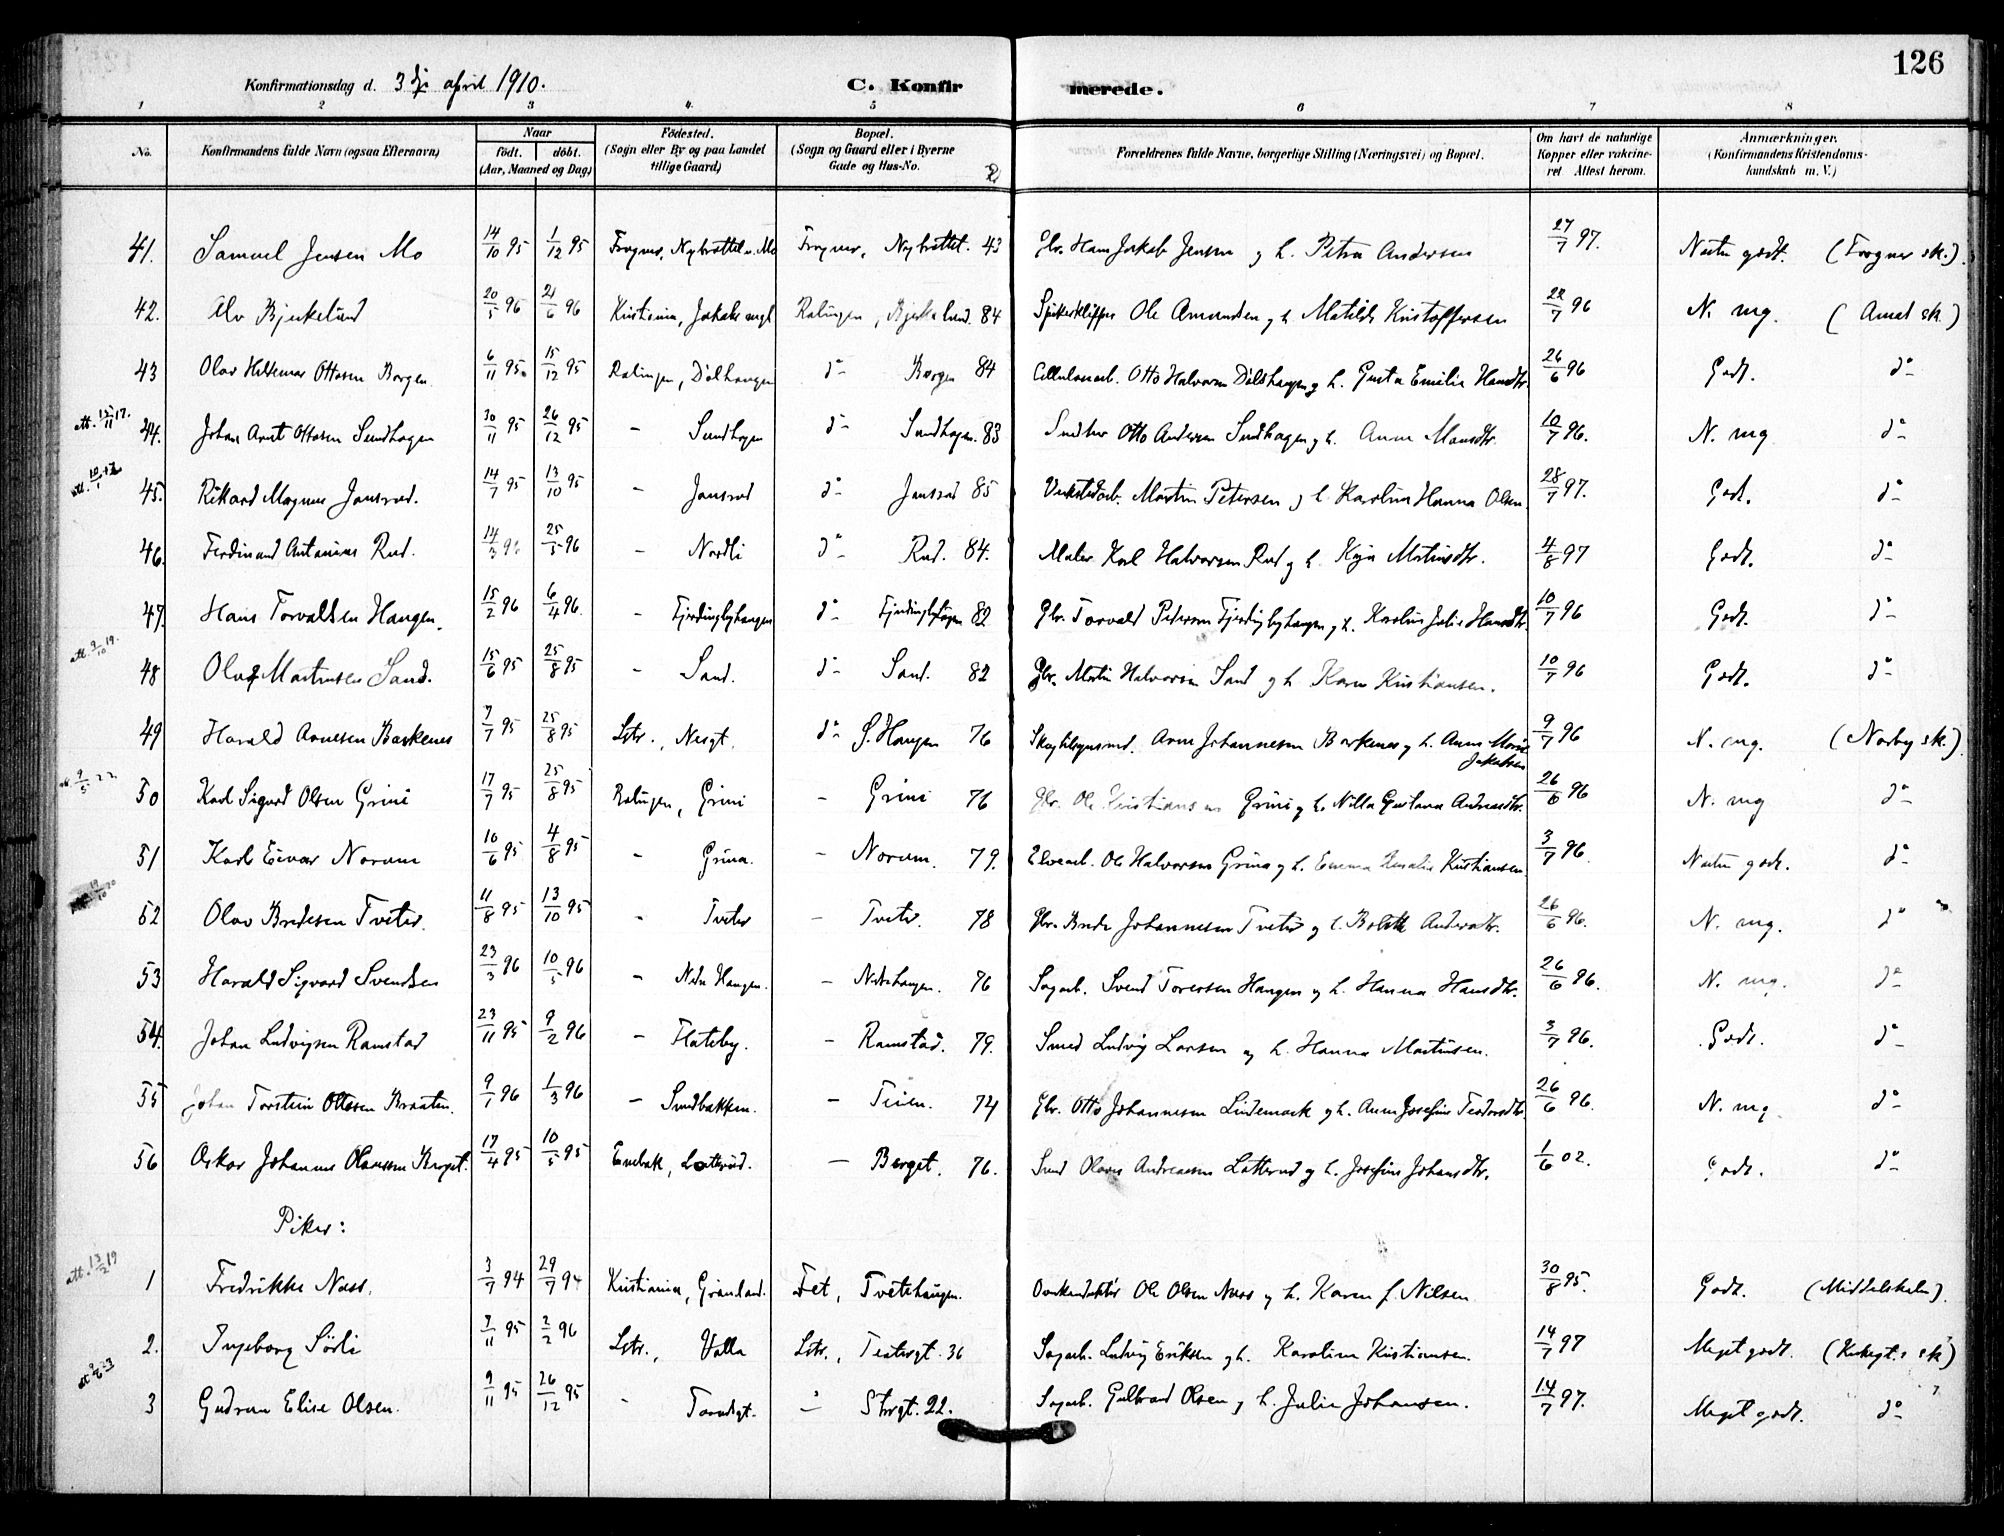 126
Konfirmationsdag d. 3dje april 1910.
C. Konfirmerede.
1 2 3 4 5 6 7 8
No.
Konfirmandens fulde Navn (ogsaa Efternavn)
Naar
födt. döbt.
(Aar, Maaned og Dag)
Födested.
(Sogn eller By og paa Landet
tillige Gaard)
Bopæl.
(Sogn og Gaard eller i Byerne
Gade og Hus-No.
Forældrenes fulde Navne, borgerlige Stilling (Næringsvei) og Bopæl.
Om havt de naturlige
Kopper eller vakcine-
ret Attest herom.
Anmærkninger.
(Konfirmandens Kristendoms-
kundskab m. V.)
41. Samuel Jensen Mo 14/10 95 1/12 95 Frogner, Nybråttet Frogner, Nybrottet. 43 Gbr. Hans Jakob Jensen og h. Petra Andersen 27/7 97. godt. (Frogner sk.)
42. Alv Bjerkelund 20/5 96 21/6 96 Kristiania, Rælingen, Bjerkelund. 84 Ole Amundsen og h. Matilde Kristoffersen 96 N. mg. (Amat sk.)
43 Olav Hildemar Ottosen Borgen. 6/11 95. 15/12 95 Rælingen, Dölhaugen do Borgen 84 Cellulosearb. Otto Halvorsen Dölhaugen og h. Gusta Emilie Hansdtr. 26/6 96 Godt. do
att. 17. 44. Johan Arnt Ottosen Sundhagen 30/11 95 26/12 95 - Sundhagen do Sundhagen. 83 Otto Andersen Sundhagen og h. Anna Hansdtr. 10/7 96. N. mg do
att. 45. Rikard Magnus Jansrud. 14/7 95 13/10 95 - Jansrud do Jansrud 85 Verkstedarb. Martin Petersen og h. Karoline Hanna Olsen. 28/7 97. Godt. do
46. Ferdinand Antonius Rud. 14/3 96 25/5 96 - Nordli do Rud. 84. Maler Karl Halvorsen Rud og h. Kaja Martinsdtr. 4/8 97 Godt. do
47. Hans Torvaldsen Haugen. 15/2 96 6/4 96. - Fjerdingbyhaugen do Fjerdingbyhaugen 82 Gbr. Torvald Petersen Fjerdingbyhaugen og h. Karoline Julie Hansdtr. 10/7 96 Godt. do
att. 9/10 19. 48 Olaf Martinsen Sand. 15/6 95 25/8 95 - Sand. do Sand. 82 Gbr. Martin Halvorsen Sand og h. Karen Kristiansen. 10/7 96 Godt. do
49 Harald Arnesen Barkenes 7/7 95 25/8 95 Lstr., Nesgt. do S. Haugen 76 Arne Johannesen Barkenes og h. Anne Marie Jakobsen 9/7 96 N. mg. (Norby sk.)
9/5 22. 50 Karl Sigurd Olsen Grini 17/7 95 25/8 95 Rælingen, Grini - Grini 76 Gbr. Ole Kristiansen Grini og h. Nilla Gustava Andreasdtr. 26/6 96 N. mg do
51 Karl Eivar Norum 10/6 95 4/8 95 - Grina. - Norum. 79. Elvearb. Ole Halvorsen Grina og h. Emma Amalie Kristiansen 3/7 96. godt. do
52 Olav Bredesen Tveter. 11/8 95 13/10 95 - Tveter - Tveter. 78 Gbr. Brede Johannesen Tveter og h. Bolette Andersdtr. 26/6 96. N. mg. do
53 Harald Sigvard Svendsen 23/3 96 10/5 96 - Nedre Haugen. - Nedrehaugen. 76 Sagarb. Svend Torersen Haugen og h. Hanna Hansdtr. 26/6 96. N. mg. do
54. Johan Ludvigsen Ramstad 23/11 95 9/2 96 - Flateby. - Ramstad. 79. Smed Ludvig Larsen og h. Hanna Martinsen. 3/7 96. Godt. do
55 Johan Torstein Ottosen Braaten. 9/1 96 1/3 96 - Sundbakken. - Teien. 74 Gbr. Otto Johannesen Lindemark og h. Anna Josefine Teodorsdtr. 26/6 96. N. mg. do
56 Oskar Johannes Olavesen Berget. 17/4 95 10/5 95 Enebak, Lotterud. - Berget. 76. Olaves Andreassen Lotterud og h. Josefine Johansdtr. 1/6 02. Godt. do
Piker:
att. 13/2 19 1 Fredrikke Næss. 3/7 94 29/7 94 Kristiania, Grönland. Fet, Tvetehaugen. Ole Olsen Næss og h. Karen f. Nilsen 30/8 95. Godt. (Middelskolen).
2. Ingeborg Sörli 7/11 95 2/2 96 Lstr., Volla Lstr., Teatergt. 36 Sagarb. Ludvig Eriksen og h. Karoline Kristiansen. 14/7 97 Meget godt. (Kirkegt.s sk)
3 Gudrun Elise Olsen. 9/11 95 26/12 95 - - Strgt. 22. Sagarb. Gulbrand Olsen og h. Julie Johansen. 14/7 97. Meget godt. do